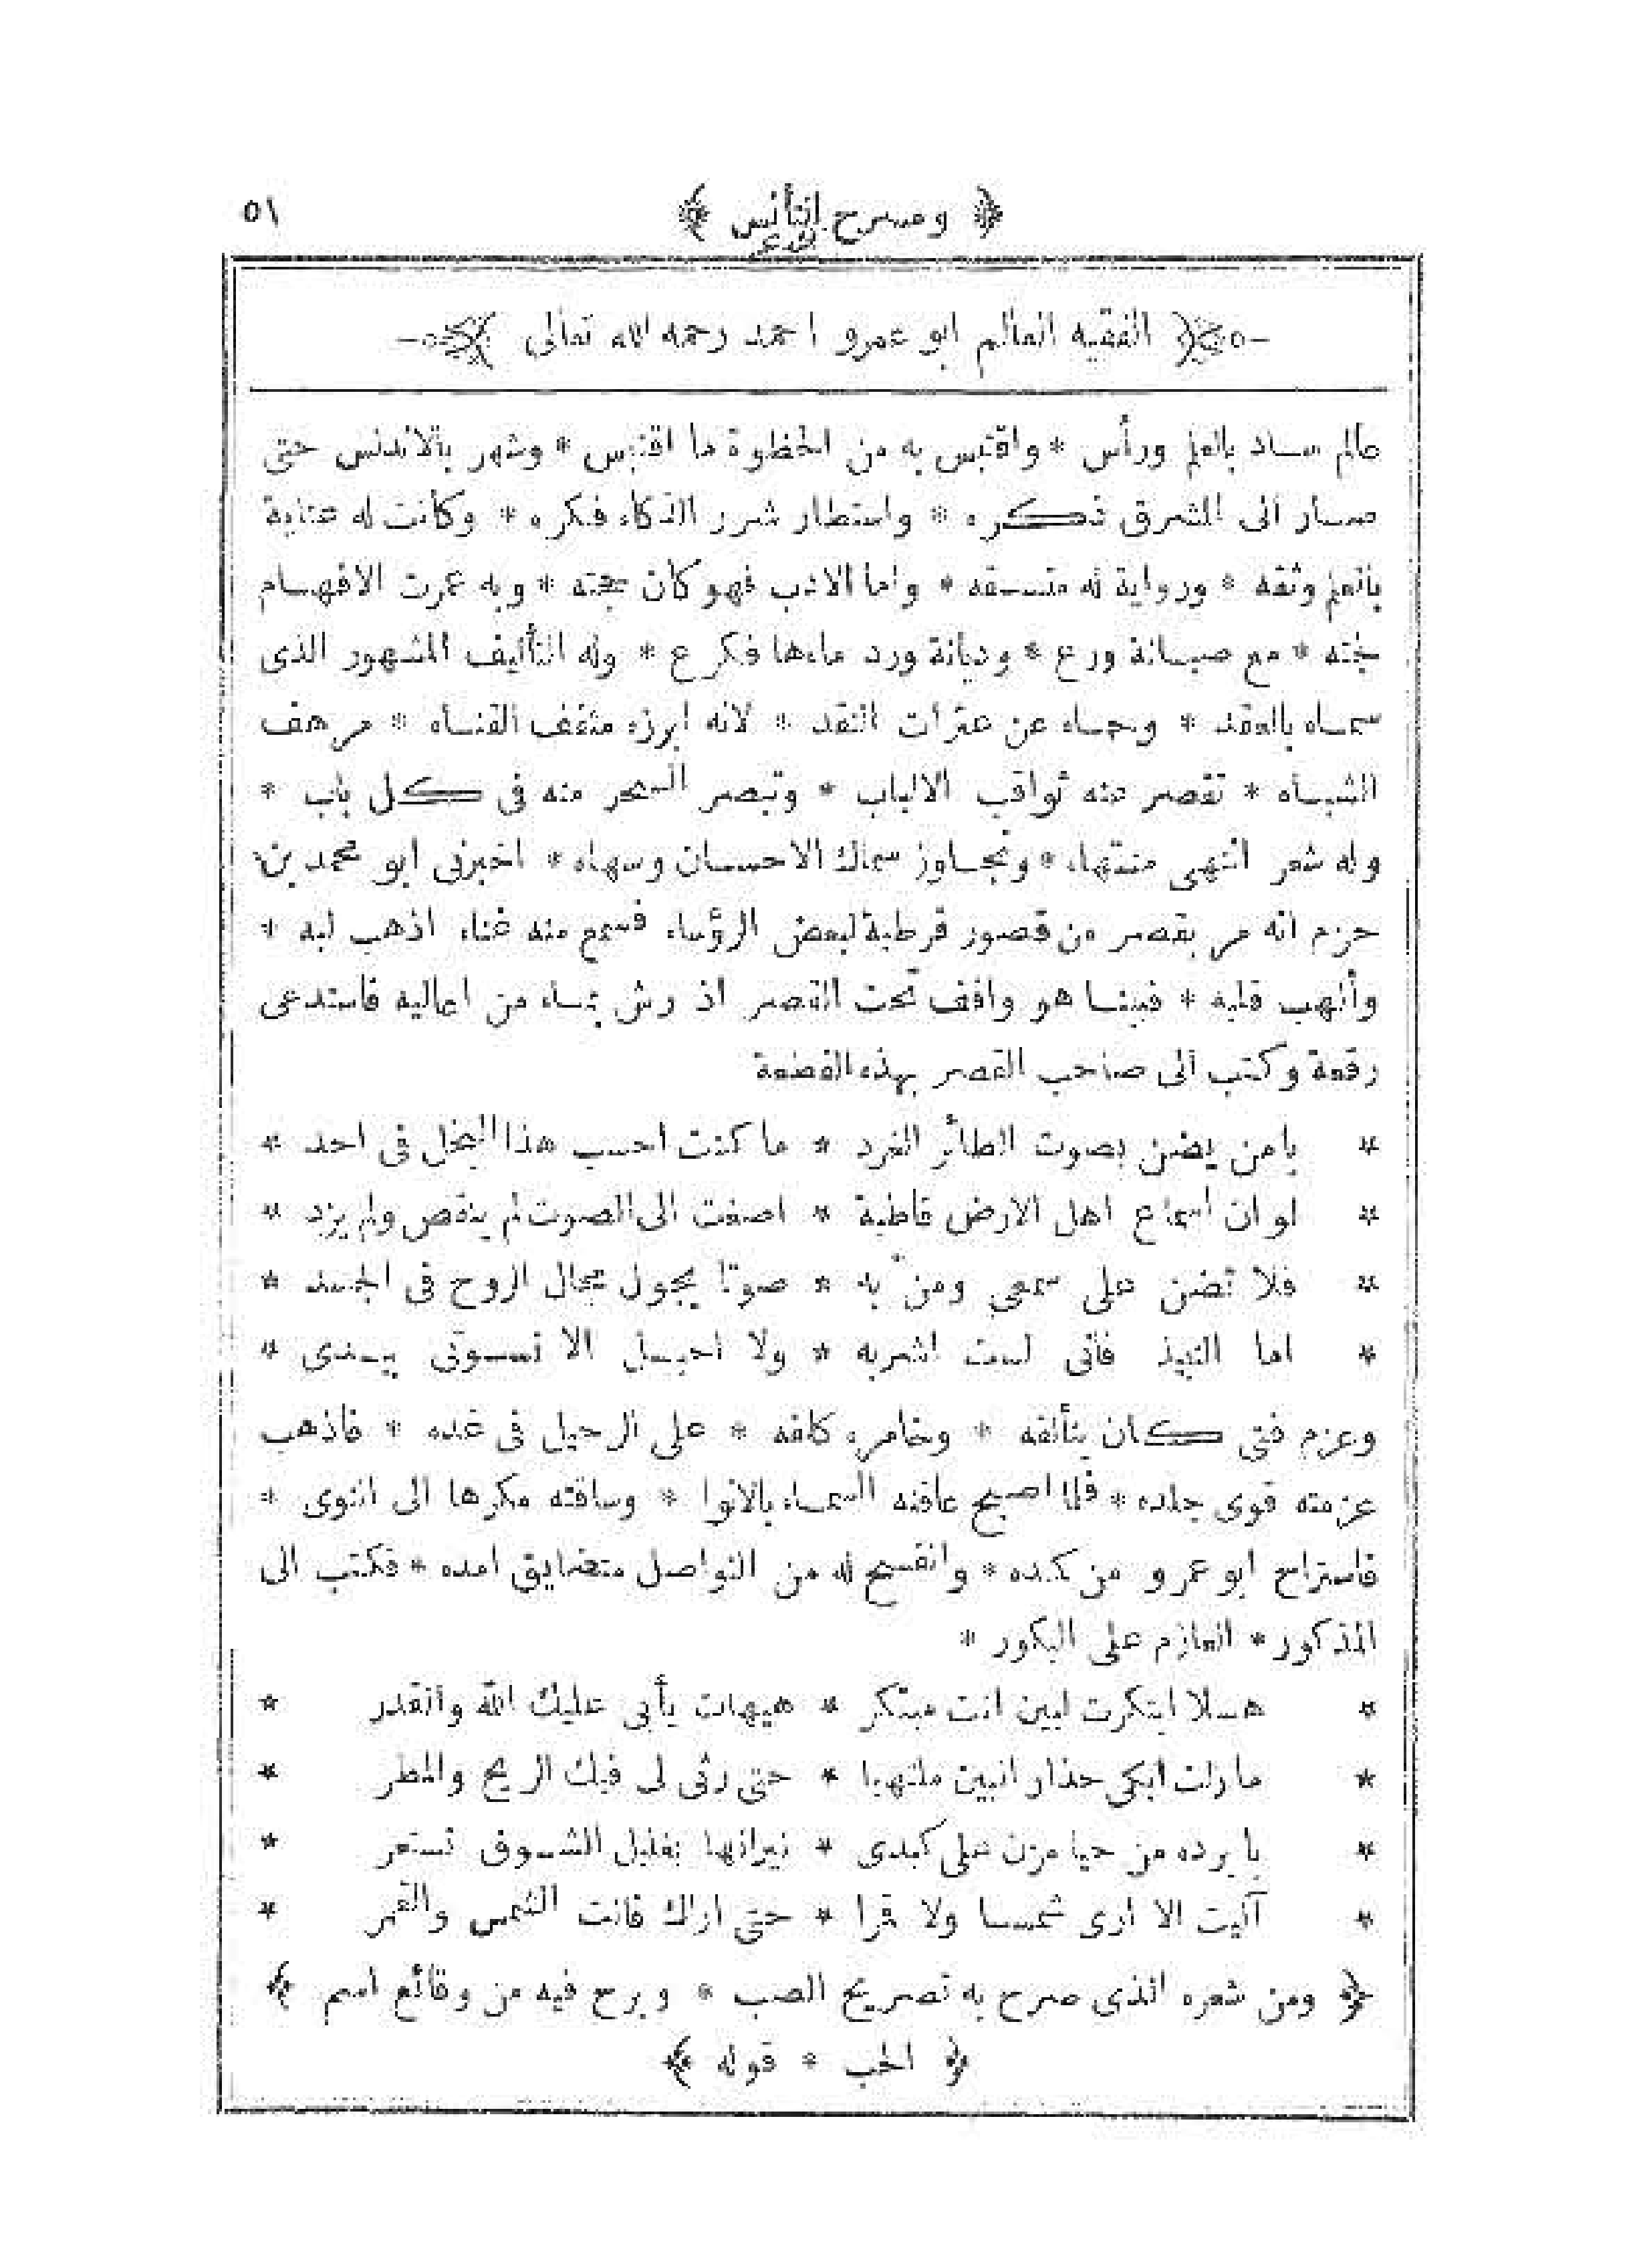 ﴿ ومسرح التأنس ﴾ ٥١
الفقيه العالم ابو عمرو احمد رحمه الله تعالى
عالم ساد بالعلم ورأس * واقتبس به من الحظوة ما اقتبس * وشهر بالاندلس حتى
سار الى المشرق ذكره * واستطار شرر الذكاء فكره * وكانت له عناية
بالعلم وثقه * ورواية له متسقه * واما الادب فهو كان حجته * وبه غمرت الافهام
لجته * مع صيانة ورع * وديانة ورد ماءها فكرع * وله التأليف المشهور الذى
سماه بالعقد * وحماه عن عثرات النقد * لانه ابرزه مثقف القناه * مرهف
الشباه * تقصر عنه ثواقب الالباب * وتبصر السحر منه فى كل باب *
وله شعر انتهى منتهاه * وتجاوز سماك الاحسان وسهاه * اخبرنى ابو محمد بن
حزم انه مر بقصر من قصور قرطبة لبعض الرؤساء فسمع منه غناء اذهب لبه *
وألهب قلبه * فبينما هو واقف تحت القصر اذ رش بماء من اعاليه فاستدعى
رقعة وكتب الى صاحب القصر بهذه القطعة
* يا من يضن بصوت الطائر الغرد * ما كنت احسب هذا البخل فى احد *
* لو ان اسماع اهل الارض قاطبة * اصغت الى الصوت لم ينقص ولم يزد *
* فلا تضن على سمعى ومنّ به * صوتا يجول مجال الروح فى الجسد *
* اما النبيذ فانى لست اشربه * ولا اجيئك الا كسرتى بيدى *
وعزم فتى كان يتألفه * وخامره كلفه * على الرحيل فى غده * فاذهب
عزمته قوى جلده * فلما اصبح عاقته السماء بالانوا * وساقته مكرها الى النوى *
فاستراح ابو عمرو من كمده * وانفسح له من التواصل متضايق امده * فكتب الى
المذكور * العازم على البكور *
* هلا ابتكرت لبين انت مبتكر * هيهات يأبى عليك الله والقدر *
* ما زلت ابكى حذار البين ملتهبا * حتى رثى لى فيك الريح والمطر *
* يا برده من حيا مزن على كبدى * نيرانها بغليل الشوق تستعر *
* آليت الا ارى شمسا ولا قمرا * حتى اراك فانت الشمس والقمر *
﴿ ومن شعره الذى صرح به تصريح الصب * وبرح فيه من وقائع اسم ﴾
﴿ الحب * قوله ﴾